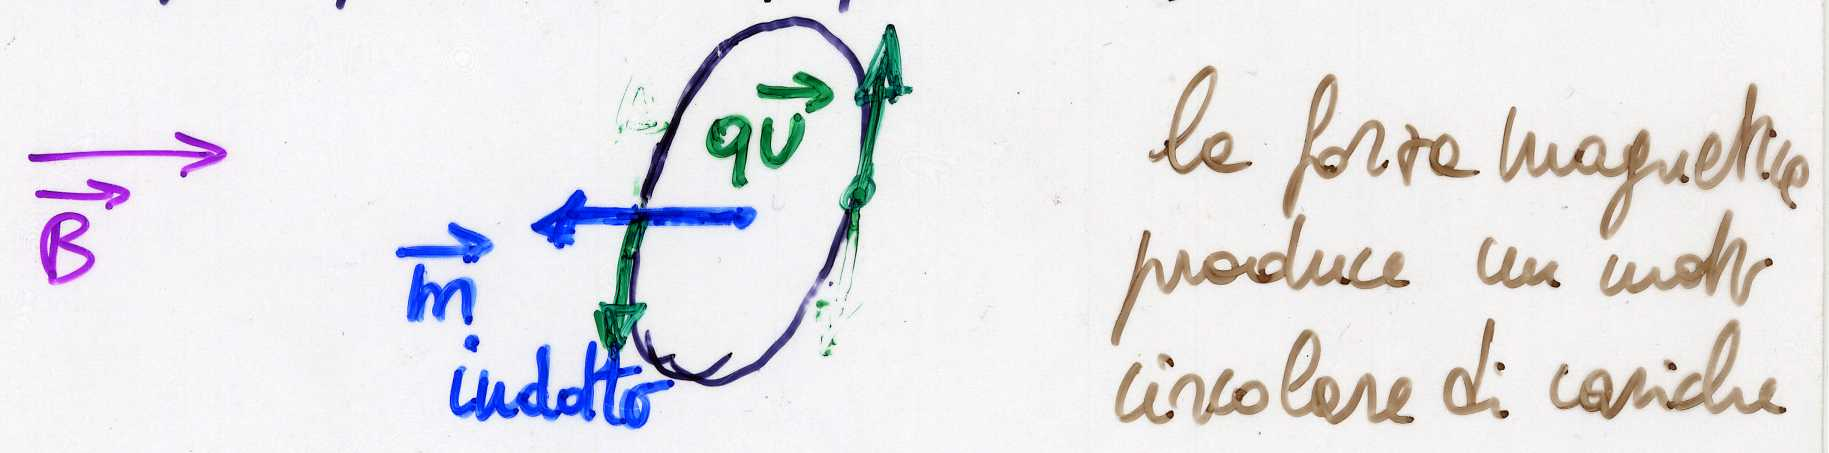 qv
B
m
indotto
la forza magnetica
produce un moto
circolare di cariche